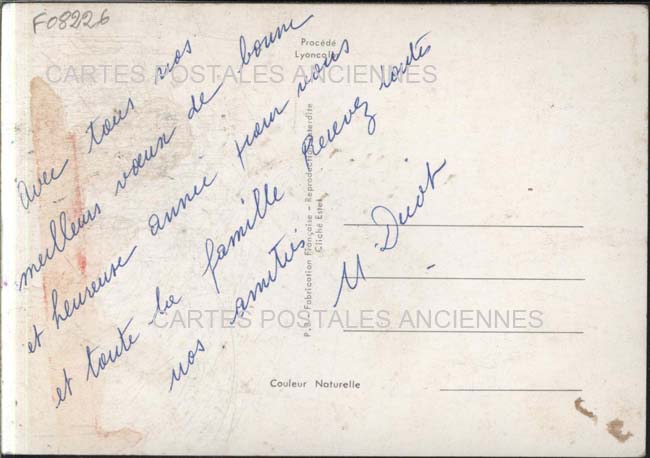 F08226
Procédé
Lyoncolor
CARTES POSTALES ANCIENNES
Avec tous nos
meilleurs vœux de bonne
et heureuse année pour vous
et toute la famille Recevez toutes
nos amitiés
P.B. - Fabrication Française - Reproduction interdite
Cliché Estel
CARTES POSTALES ANCIENNES
Couleur Naturelle